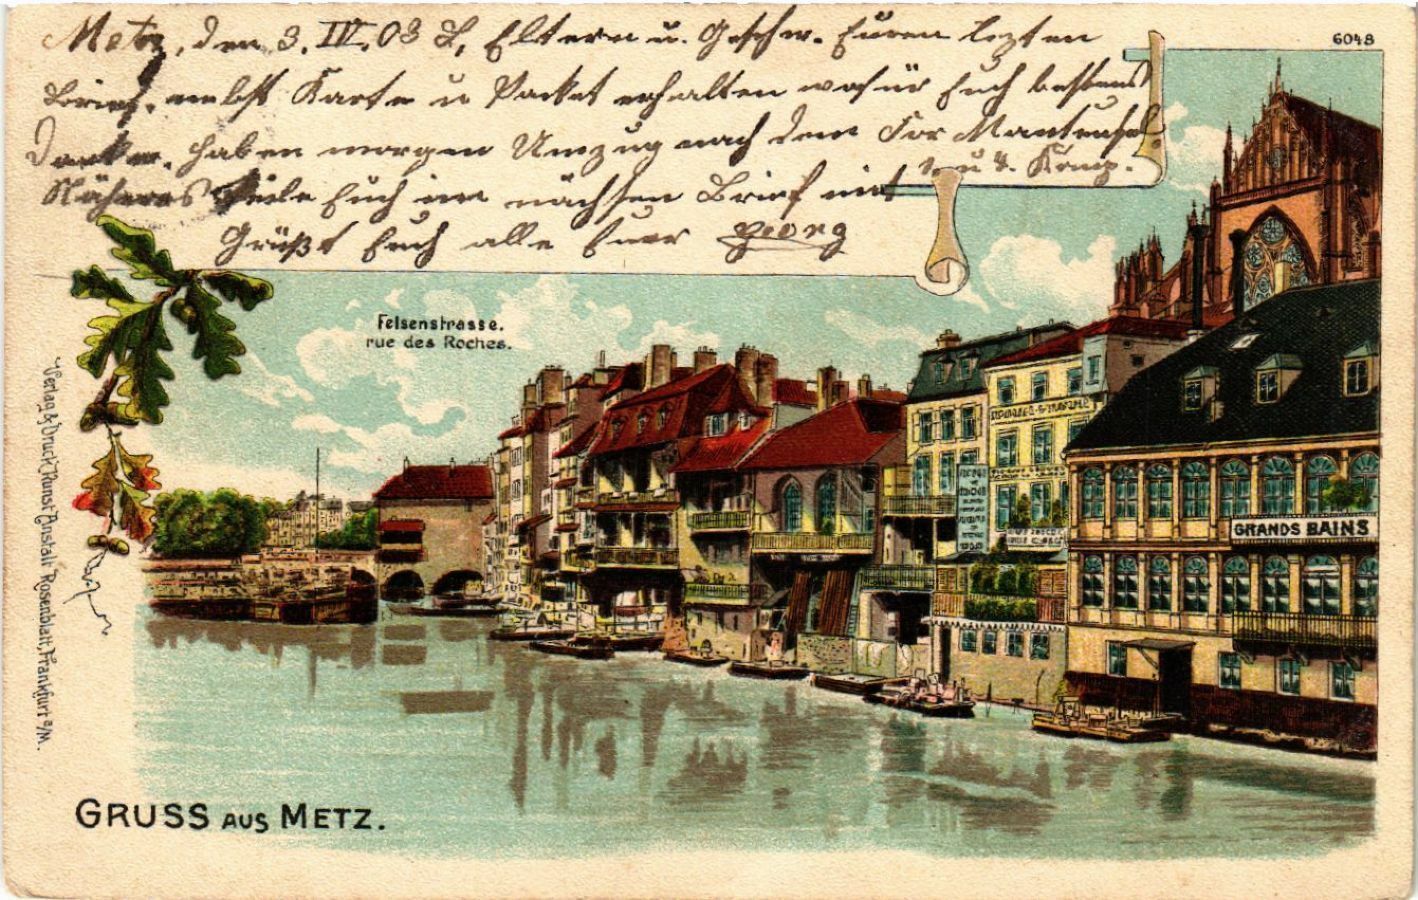 Metz, den 3. IV. 03 L. Eltern u. Geschw. Euren lezten
Brief, nebst Karte u Packet erhalten wofür Euch bestens
Danke. Haben morgen Umzug nach dem For Manteufel
Näheres Teile Euch im nächsten Brief mit u. Komp.
Grüßt Euch alle Euer Georg
6048
Felsenstrasse.
rue des Roches.
GRANDS BAINS
Verlag & Druck Kunst Anstalt Rosenblatt, Frankfurt a/M.
GRUSS AUS METZ.